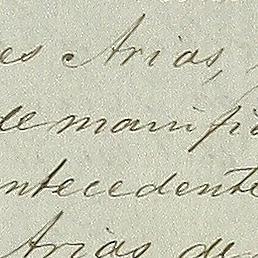 es Arias,
de manifie
ntecedente
Arias de